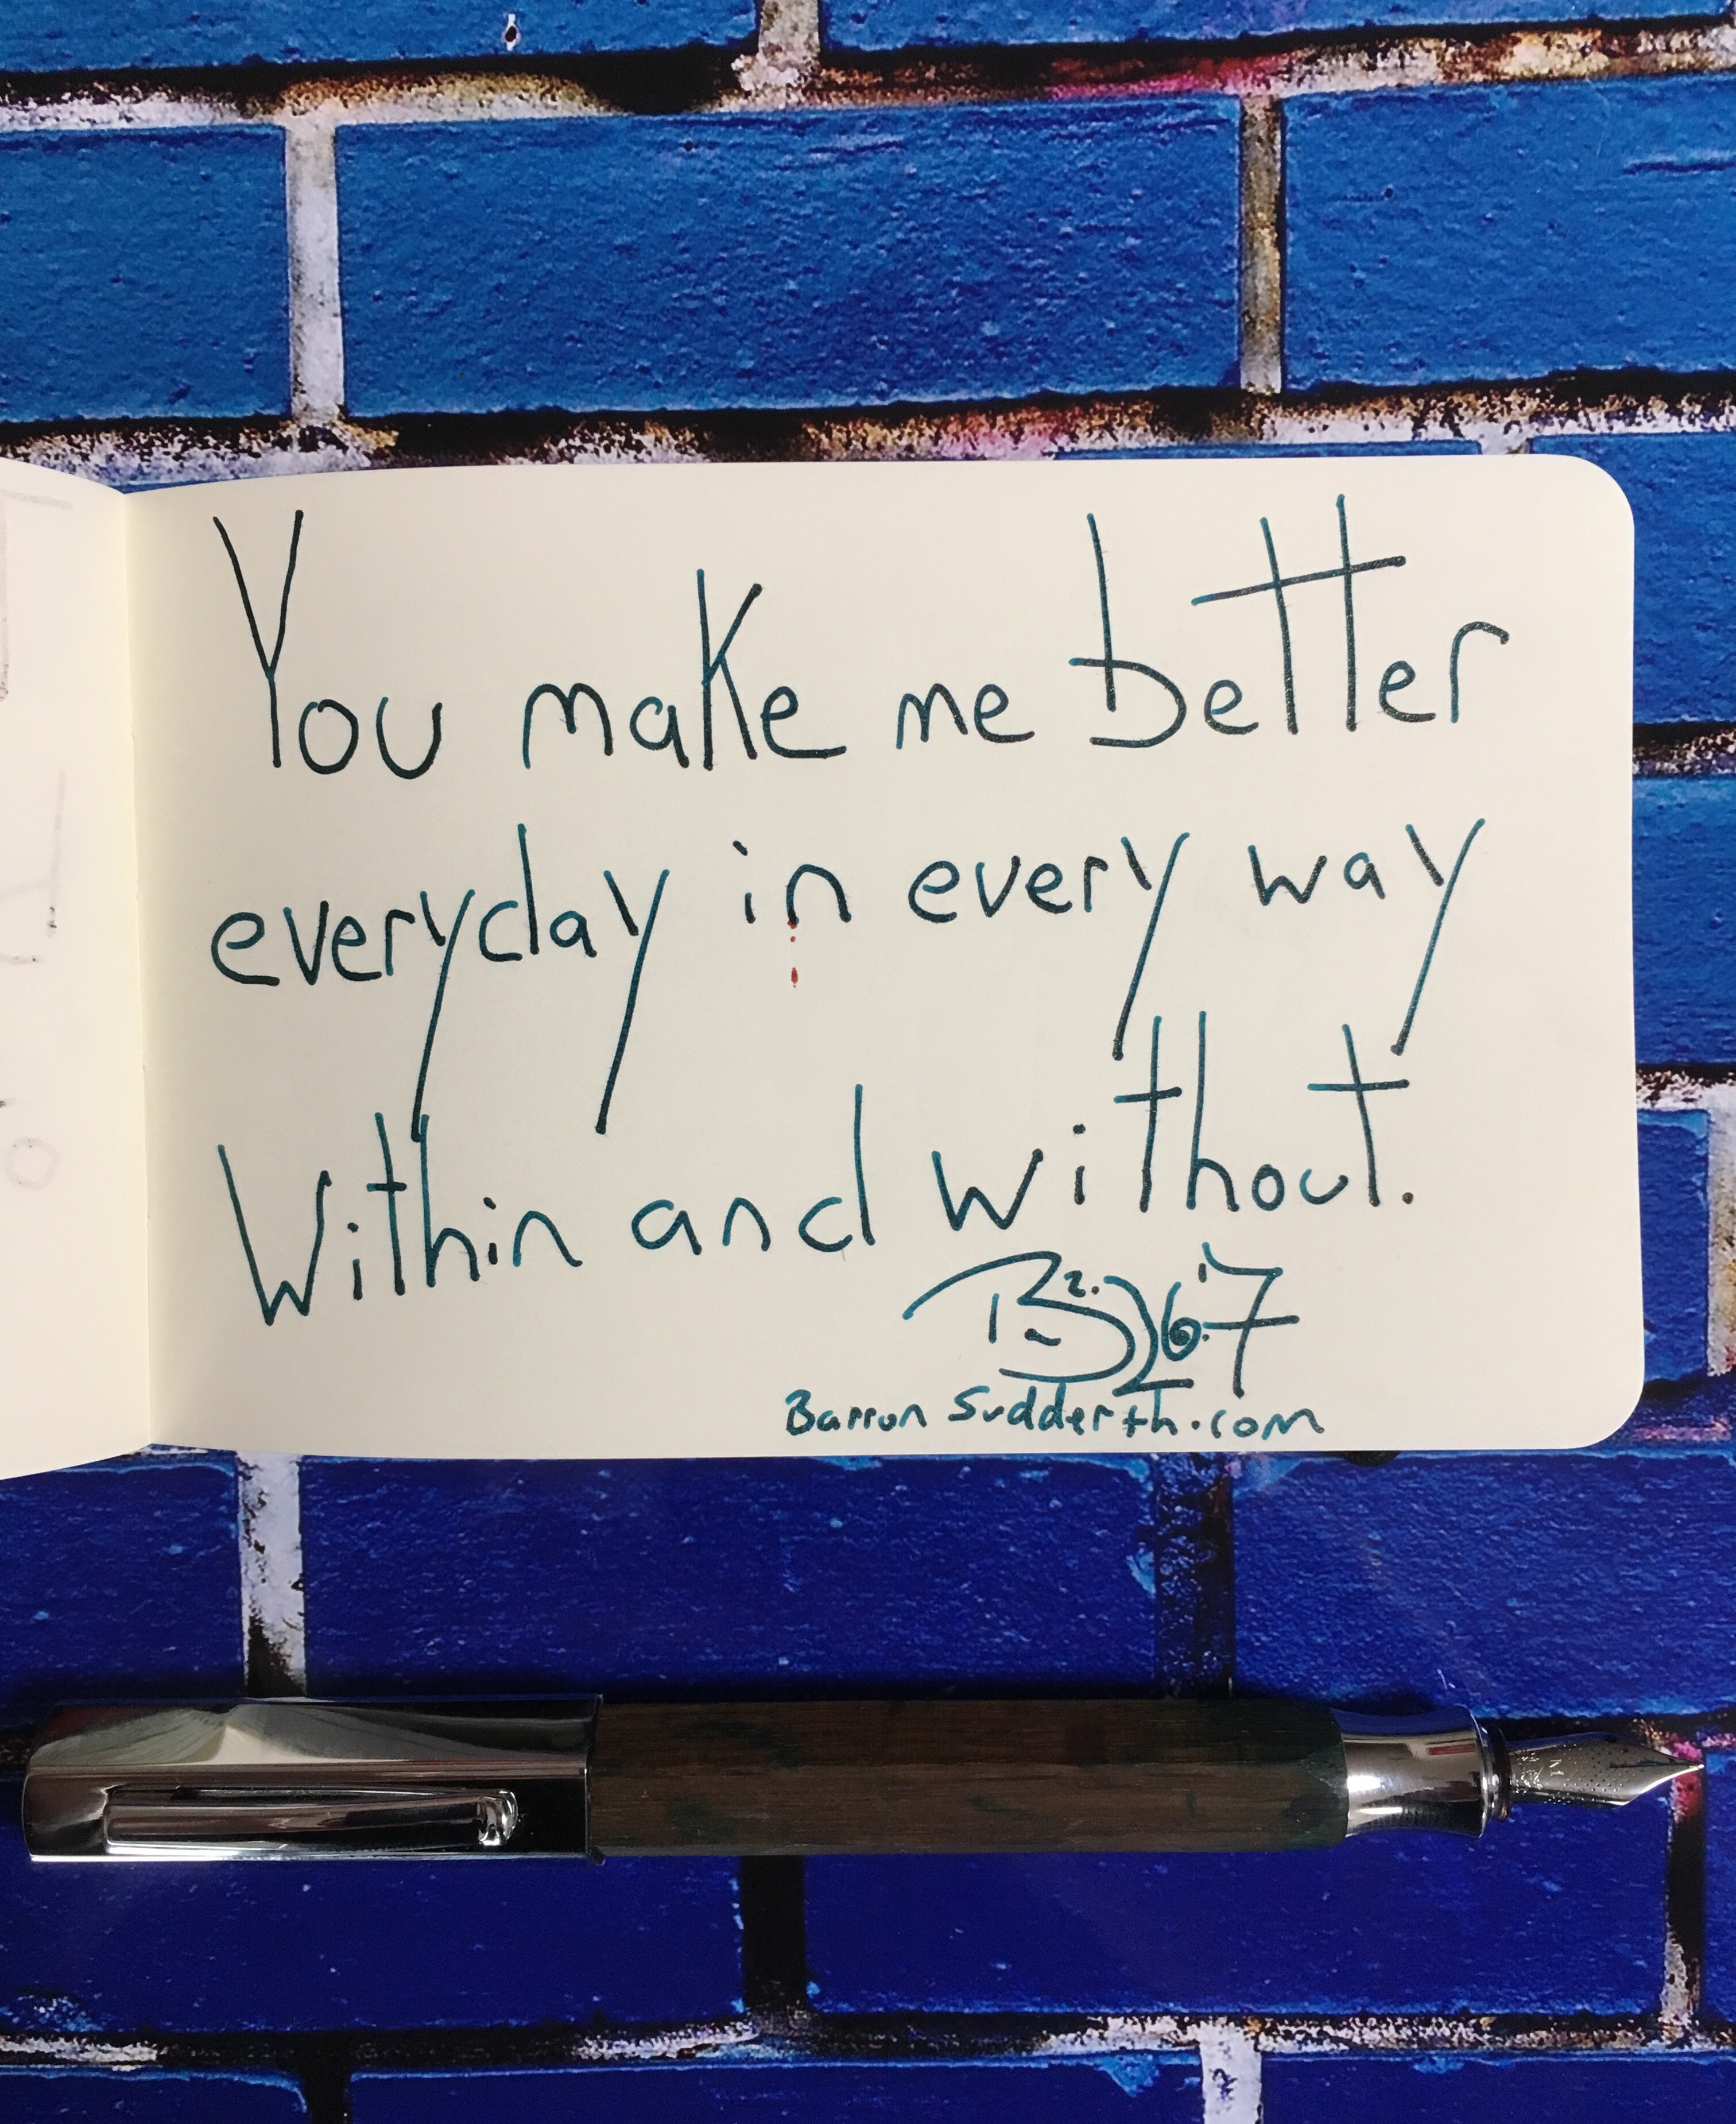 You make me better
everyday in every way
Within and without.
Barron Sudderth.com